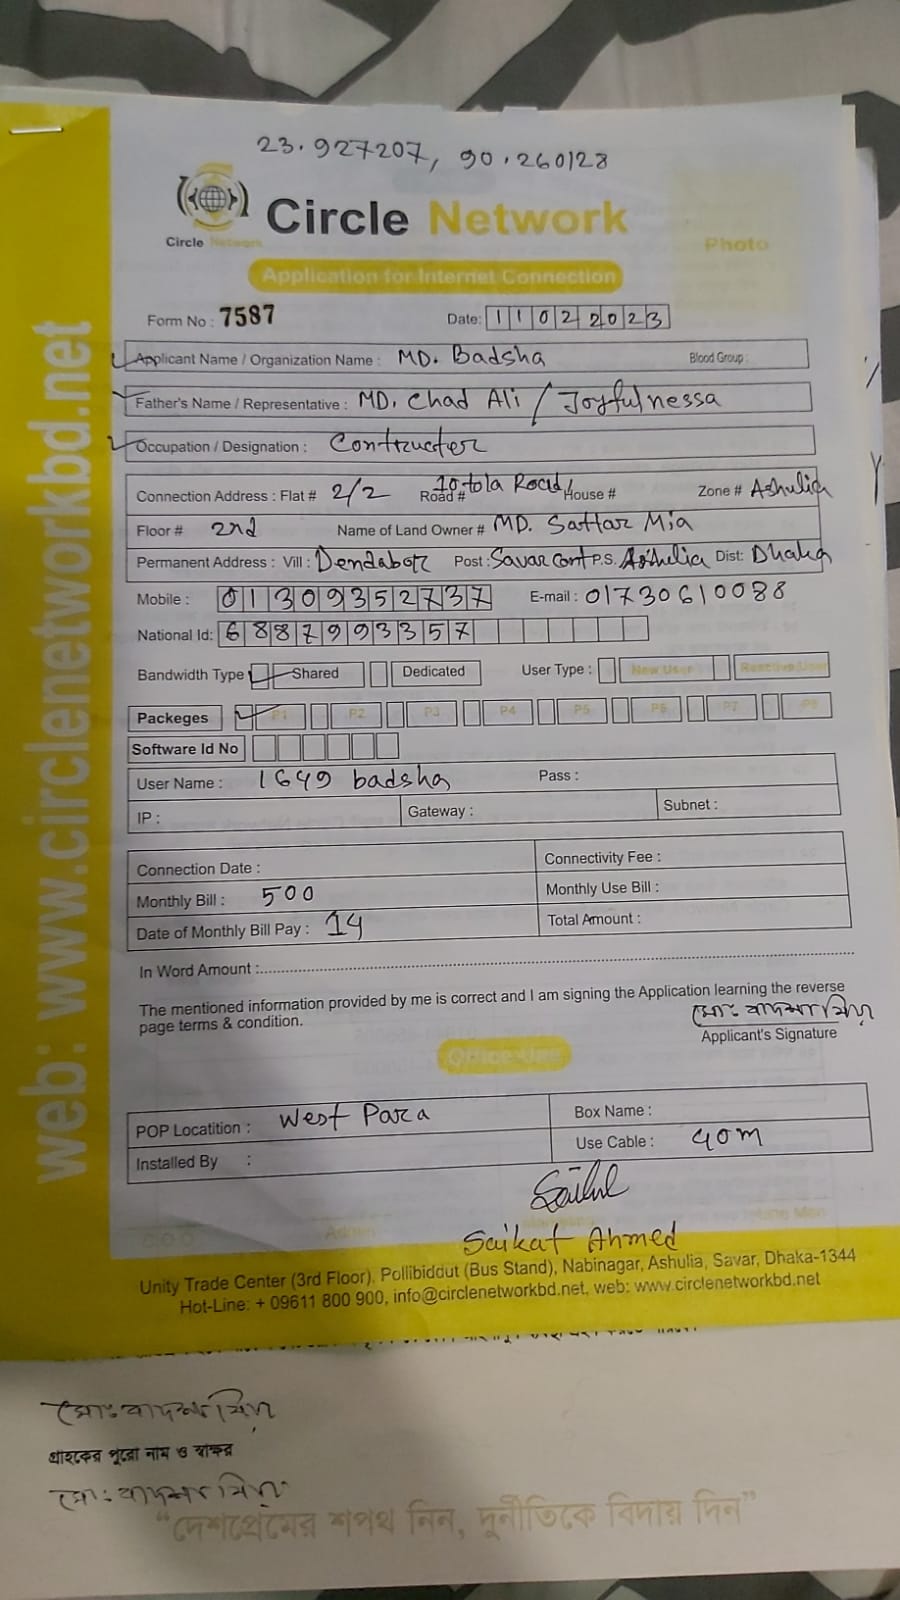 23.927207, 90.260128
Circle Network
Circle Network
Photo
Application for Internet Connection
Form No : 7587 Date: 11022023
Applicant Name / Organization Name : MD. Badsha Blood Group :
Father's Name / Representative : MD. Chad Ali / Joyfulnessa
Occupation / Designation : Contructer
Connection Address : Flat # 2/2 Road # 10 tola Road/ House # Zone # Ashulia
Floor # 2nd Name of Land Owner # MD. Sattar Mia
Permanent Address : Vill : Dendabor Post : Savar Cant P.S. Ashulia Dist: Dhaka
Mobile : 01309352737 E-mail : 01730610088
National Id: 6887993357
Bandwidth Type Shared Dedicated User Type : New User Reactive User
Packeges P1 P2 P3 P4 P5 P6 P7 P8
Software Id No
User Name : 1649 badsha Pass :
IP : Gateway : Subnet :
Connection Date : Connectivity Fee :
Monthly Bill : 500 Monthly Use Bill :
Date of Monthly Bill Pay : 14 Total Amount :
In Word Amount :
The mentioned information provided by me is correct and I am signing the Application learning the reverse
page terms & condition.
মোঃ বাদশা মিয়া
Applicant's Signature
Office Use
POP Locatition : West Para Box Name :
Installed By : Use Cable : 40m
Saikat Ahmed
Admin
Unity Trade Center (3rd Floor), Pollibiddut (Bus Stand), Nabinagar, Ashulia, Savar, Dhaka-1344
Hot-Line: + 09611 800 900, info@circlenetworkbd.net, web: www.circlenetworkbd.net
web: www.circlenetworkbd.net
মোঃ বাদশা মিয়া
গ্রাহকের পুরো নাম ও স্বাক্ষর
মোঃ বাদশা মিয়া
“দেশপ্রেমের শপথ নিন, দুর্নীতিকে বিদায় দিন”